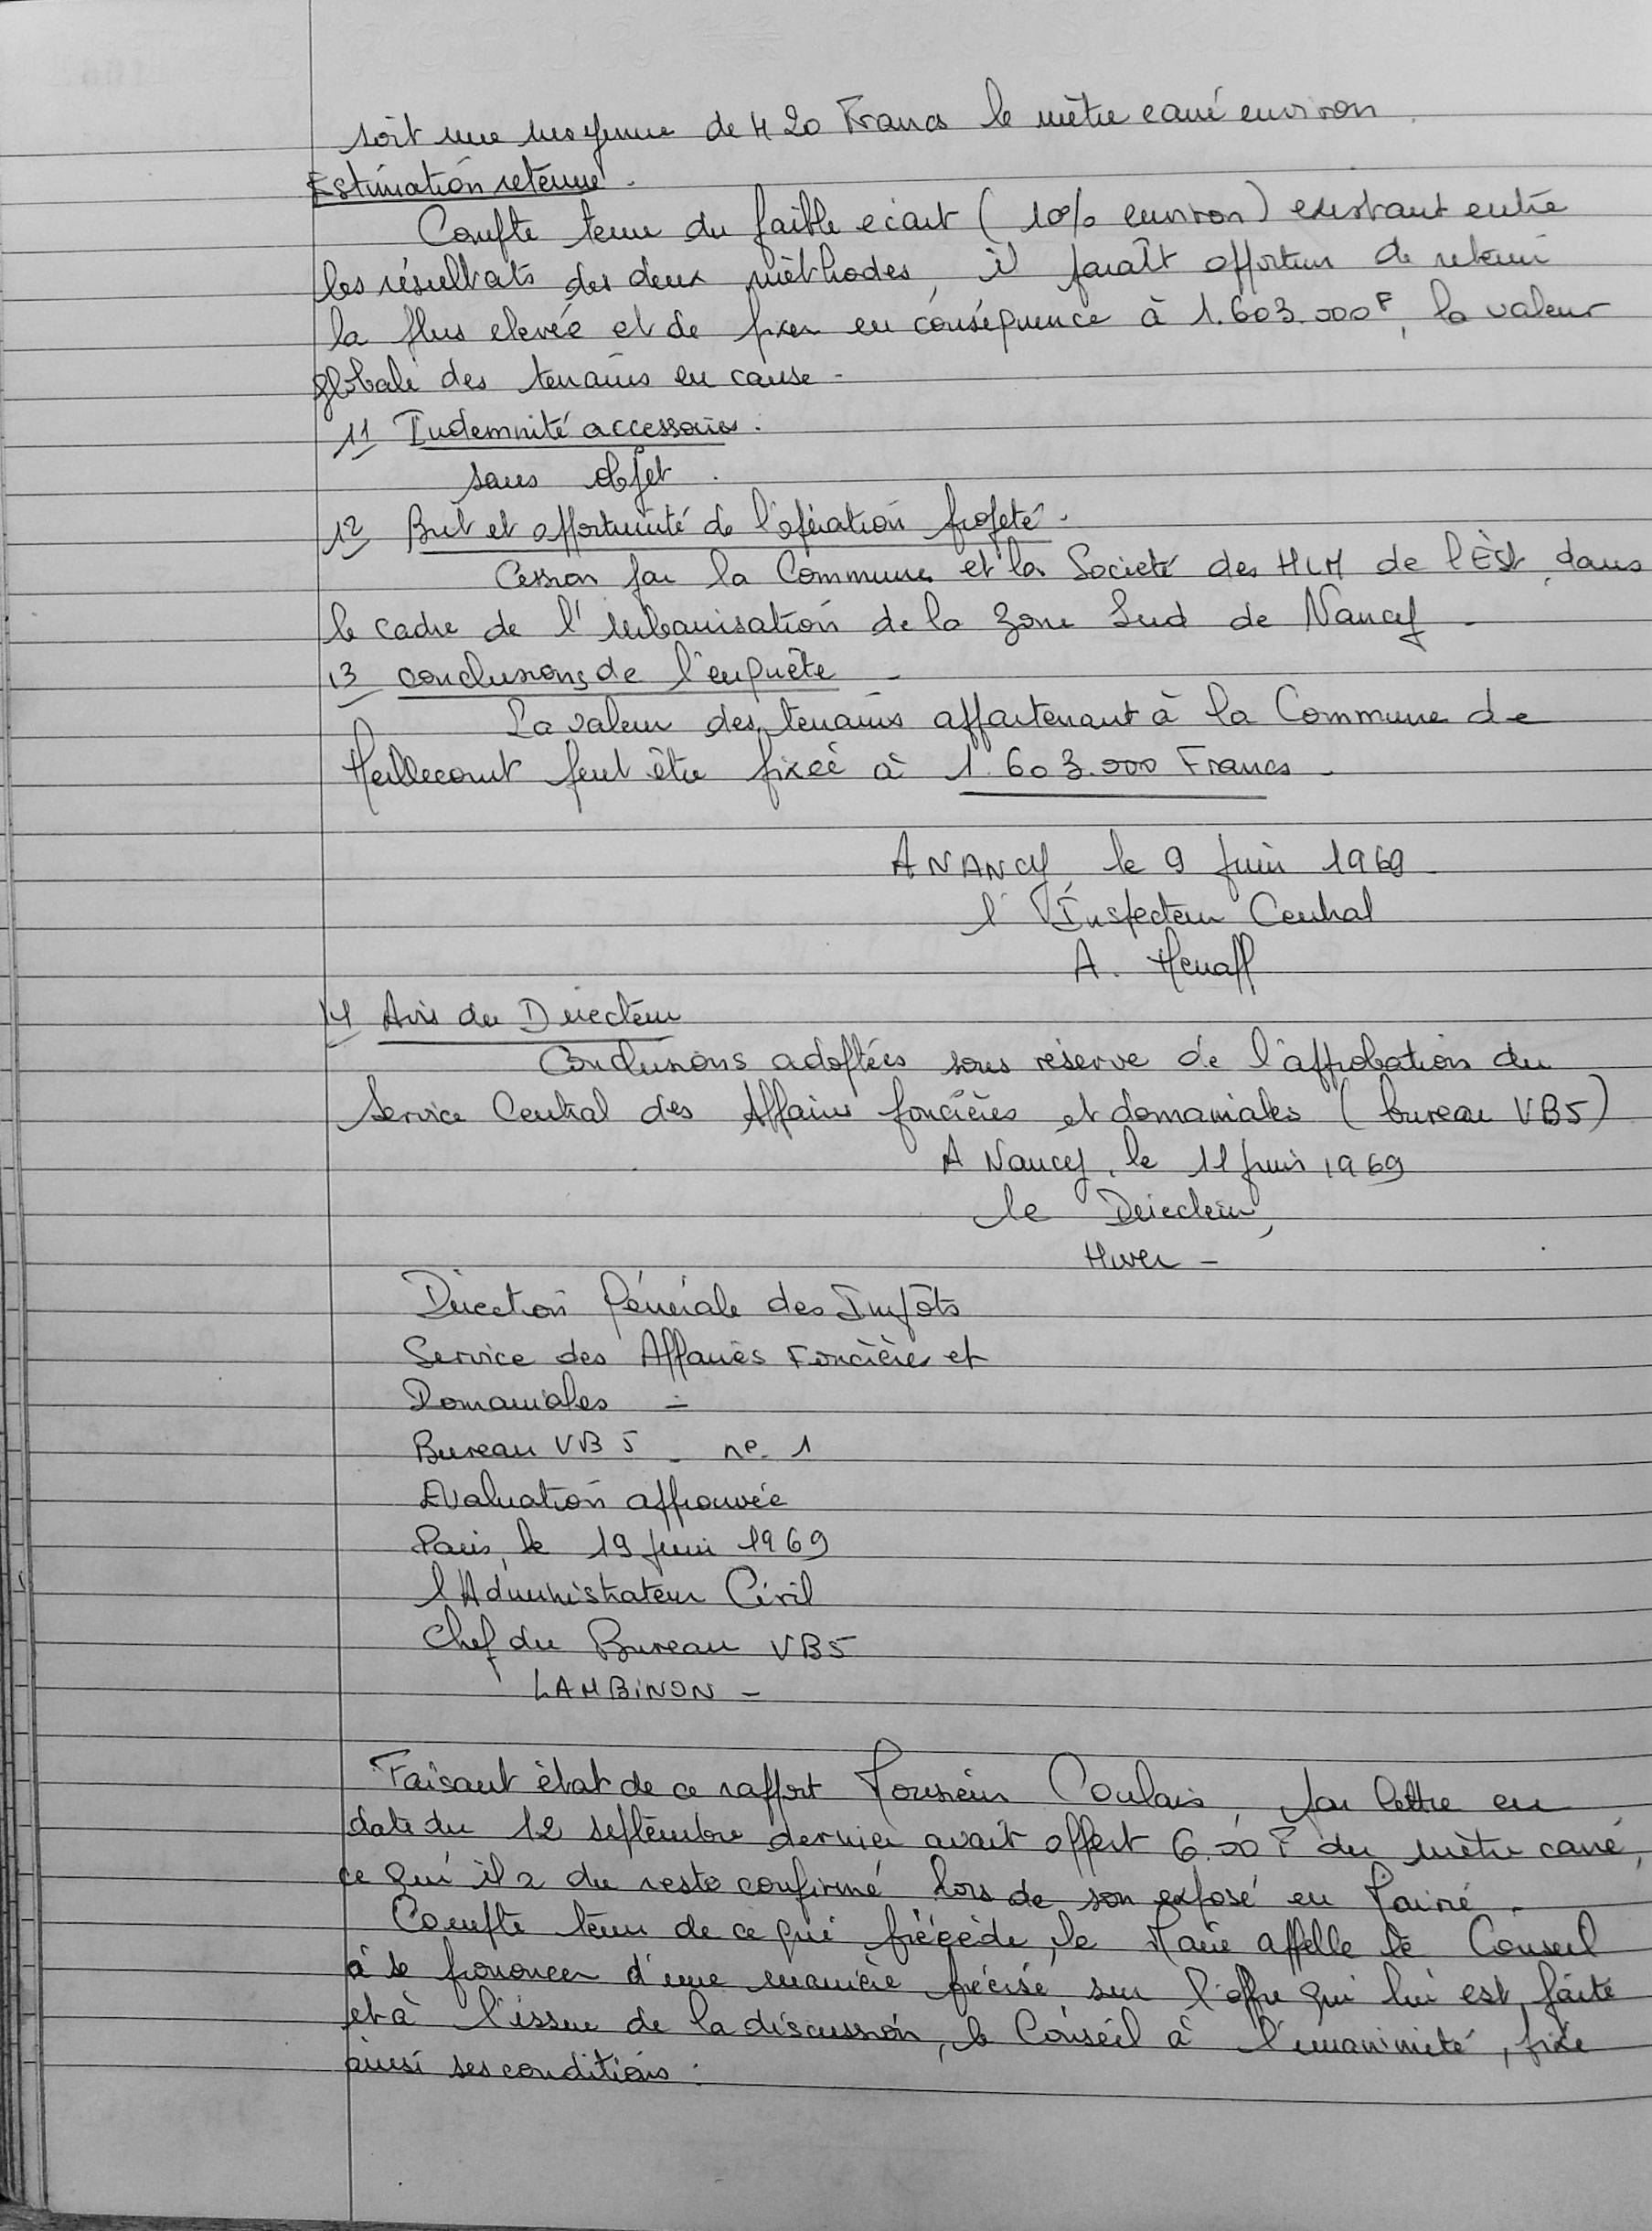 soit une moyenne de 4 20 Francs le mètre carré environ.
Estimation retenue.
Compte tenu du faible ecart (10% environ) existant entre
les résultats des deux méthodes, il paraît opportun de retenir
la plus elevée et de fixer en conséquence à 1.603.000F, la valeur
globale des terrains en cause -
11 Indemnité accessoires.
sans objet.
12 But et opportunité de l'opération projeté -
Cession par la Commune et la Societé des HLM de l'Est, dans
le cadre de l'urbanisation de la Zone Sud de Nancy -
13 conclusions de l'enquête -
La valeur des terrains appartenant à la Commune de
Heillecourt peut être fixée à 1.603.000 Francs -
A NANCY, le 9 juin 1969
l'Inspecteur Central
A. Henaff
14 Avis du Directeur
Conclusions adoptées sous réserve de l'approbation du
Service Central des Affaires foncières et domaniales (bureau VB5)
A Nancy, le 11 juin 1969
le Directeur,
Direction Générale des Impôts
Service des Affaires Foncière et
Domaniales -
Bureau VB 5 - n° 1
Evaluation approuvée
Paris, le 19 juin 1969
l'Administrateur Civil
Chef du Bureau VB5
LAMBINON -
Faisant état de ce rapport Monsieur Coulais, par lettre en
date du 12 septembre dernier avait offert 6.00 F du mètre carré,
ce qu'il a du reste confirmé lors de son exposé en Mairie -
Compte tenu de ce qui précède, le Maire appelle le Conseil
à se prononcer d'une manière précise sur l'offre qui lui est faite
et à l'issue de la discussion, le Conseil à l'unanimité, fixe
ainsi ses conditions :